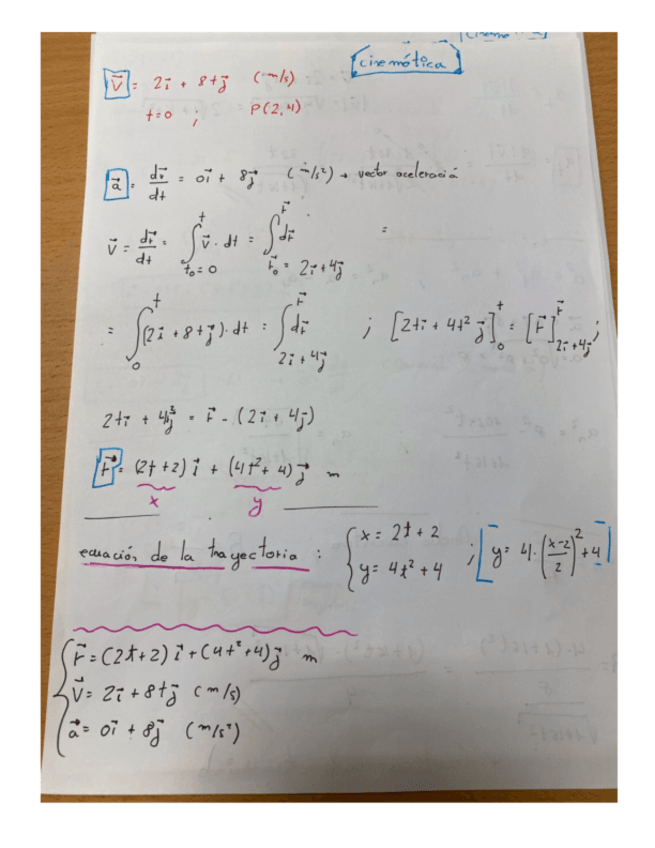 cinemática
v⃗ = 2i⃗ + 8tj⃗ (m/s)
t=0 ; P(2,4)
a⃗ = dv⃗/dt = 0i⃗ + 8j⃗ (m/s²) → vector aceleració
v⃗ = dr⃗/dt = ∫_{t₀=0}^{t} v⃗ · dt = ∫_{r⃗₀ = 2i⃗+4j⃗}^{r⃗} dr⃗ =
= ∫_{0}^{t} (2i⃗ + 8tj⃗) · dt = ∫_{2i⃗+4j⃗}^{r⃗} dr⃗ ; [2ti⃗ + 4t² j⃗]_{0}^{t} = [r⃗]_{2i⃗+4j⃗}^{r⃗} ;
2ti⃗ + 4t²j⃗ = r⃗ - (2i⃗ + 4j⃗)
r⃗ = (2t+2) i⃗ + (4t²+4) j⃗ m
x y
ecuación de la trayectoria : { x = 2t + 2
y = 4t² + 4 ; [ y = 4·(x-2/2)² + 4 ]
r⃗ = (2t+2) i⃗ + (4t²+4) j⃗ m
v⃗ = 2i⃗ + 8tj⃗ (m/s)
a⃗ = 0i⃗ + 8j⃗ (m/s²)